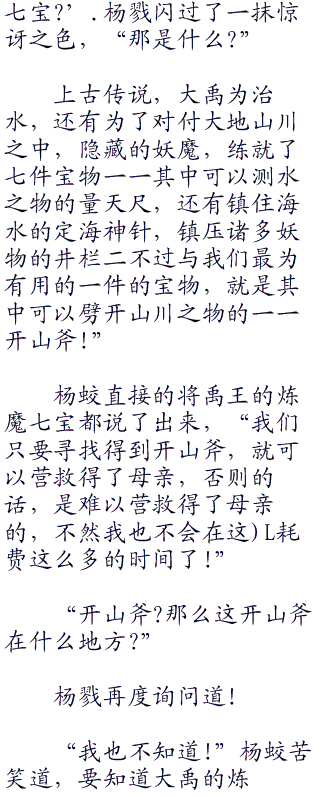 七宝?’.杨戮闪过了一抹惊
讶之色，“那是什么?”
上古传说，大禹为治
水，还有为了对付大地山川
之中，隐藏的妖魔，练就了
七件宝物一一其中可以测水
之物的量天尺，还有镇住海
水的定海神针，镇压诸多妖
物的井栏二不过与我们最为
有用的一件的宝物，就是其
中可以劈开山川之物的一一
开山斧!”
杨蛟直接的将禹王的炼
魔七宝都说了出来，“我们
只要寻找得到开山斧，就可
以营救得了母亲，否则的
话，是难以营救得了母亲
的，不然我也不会在这)L耗
费这么多的时间了!”
“开山斧?那么这开山斧
在什么地方?”
杨戮再度询问道!
“我也不知道!”杨蛟苦
笑道，要知道大禹的炼